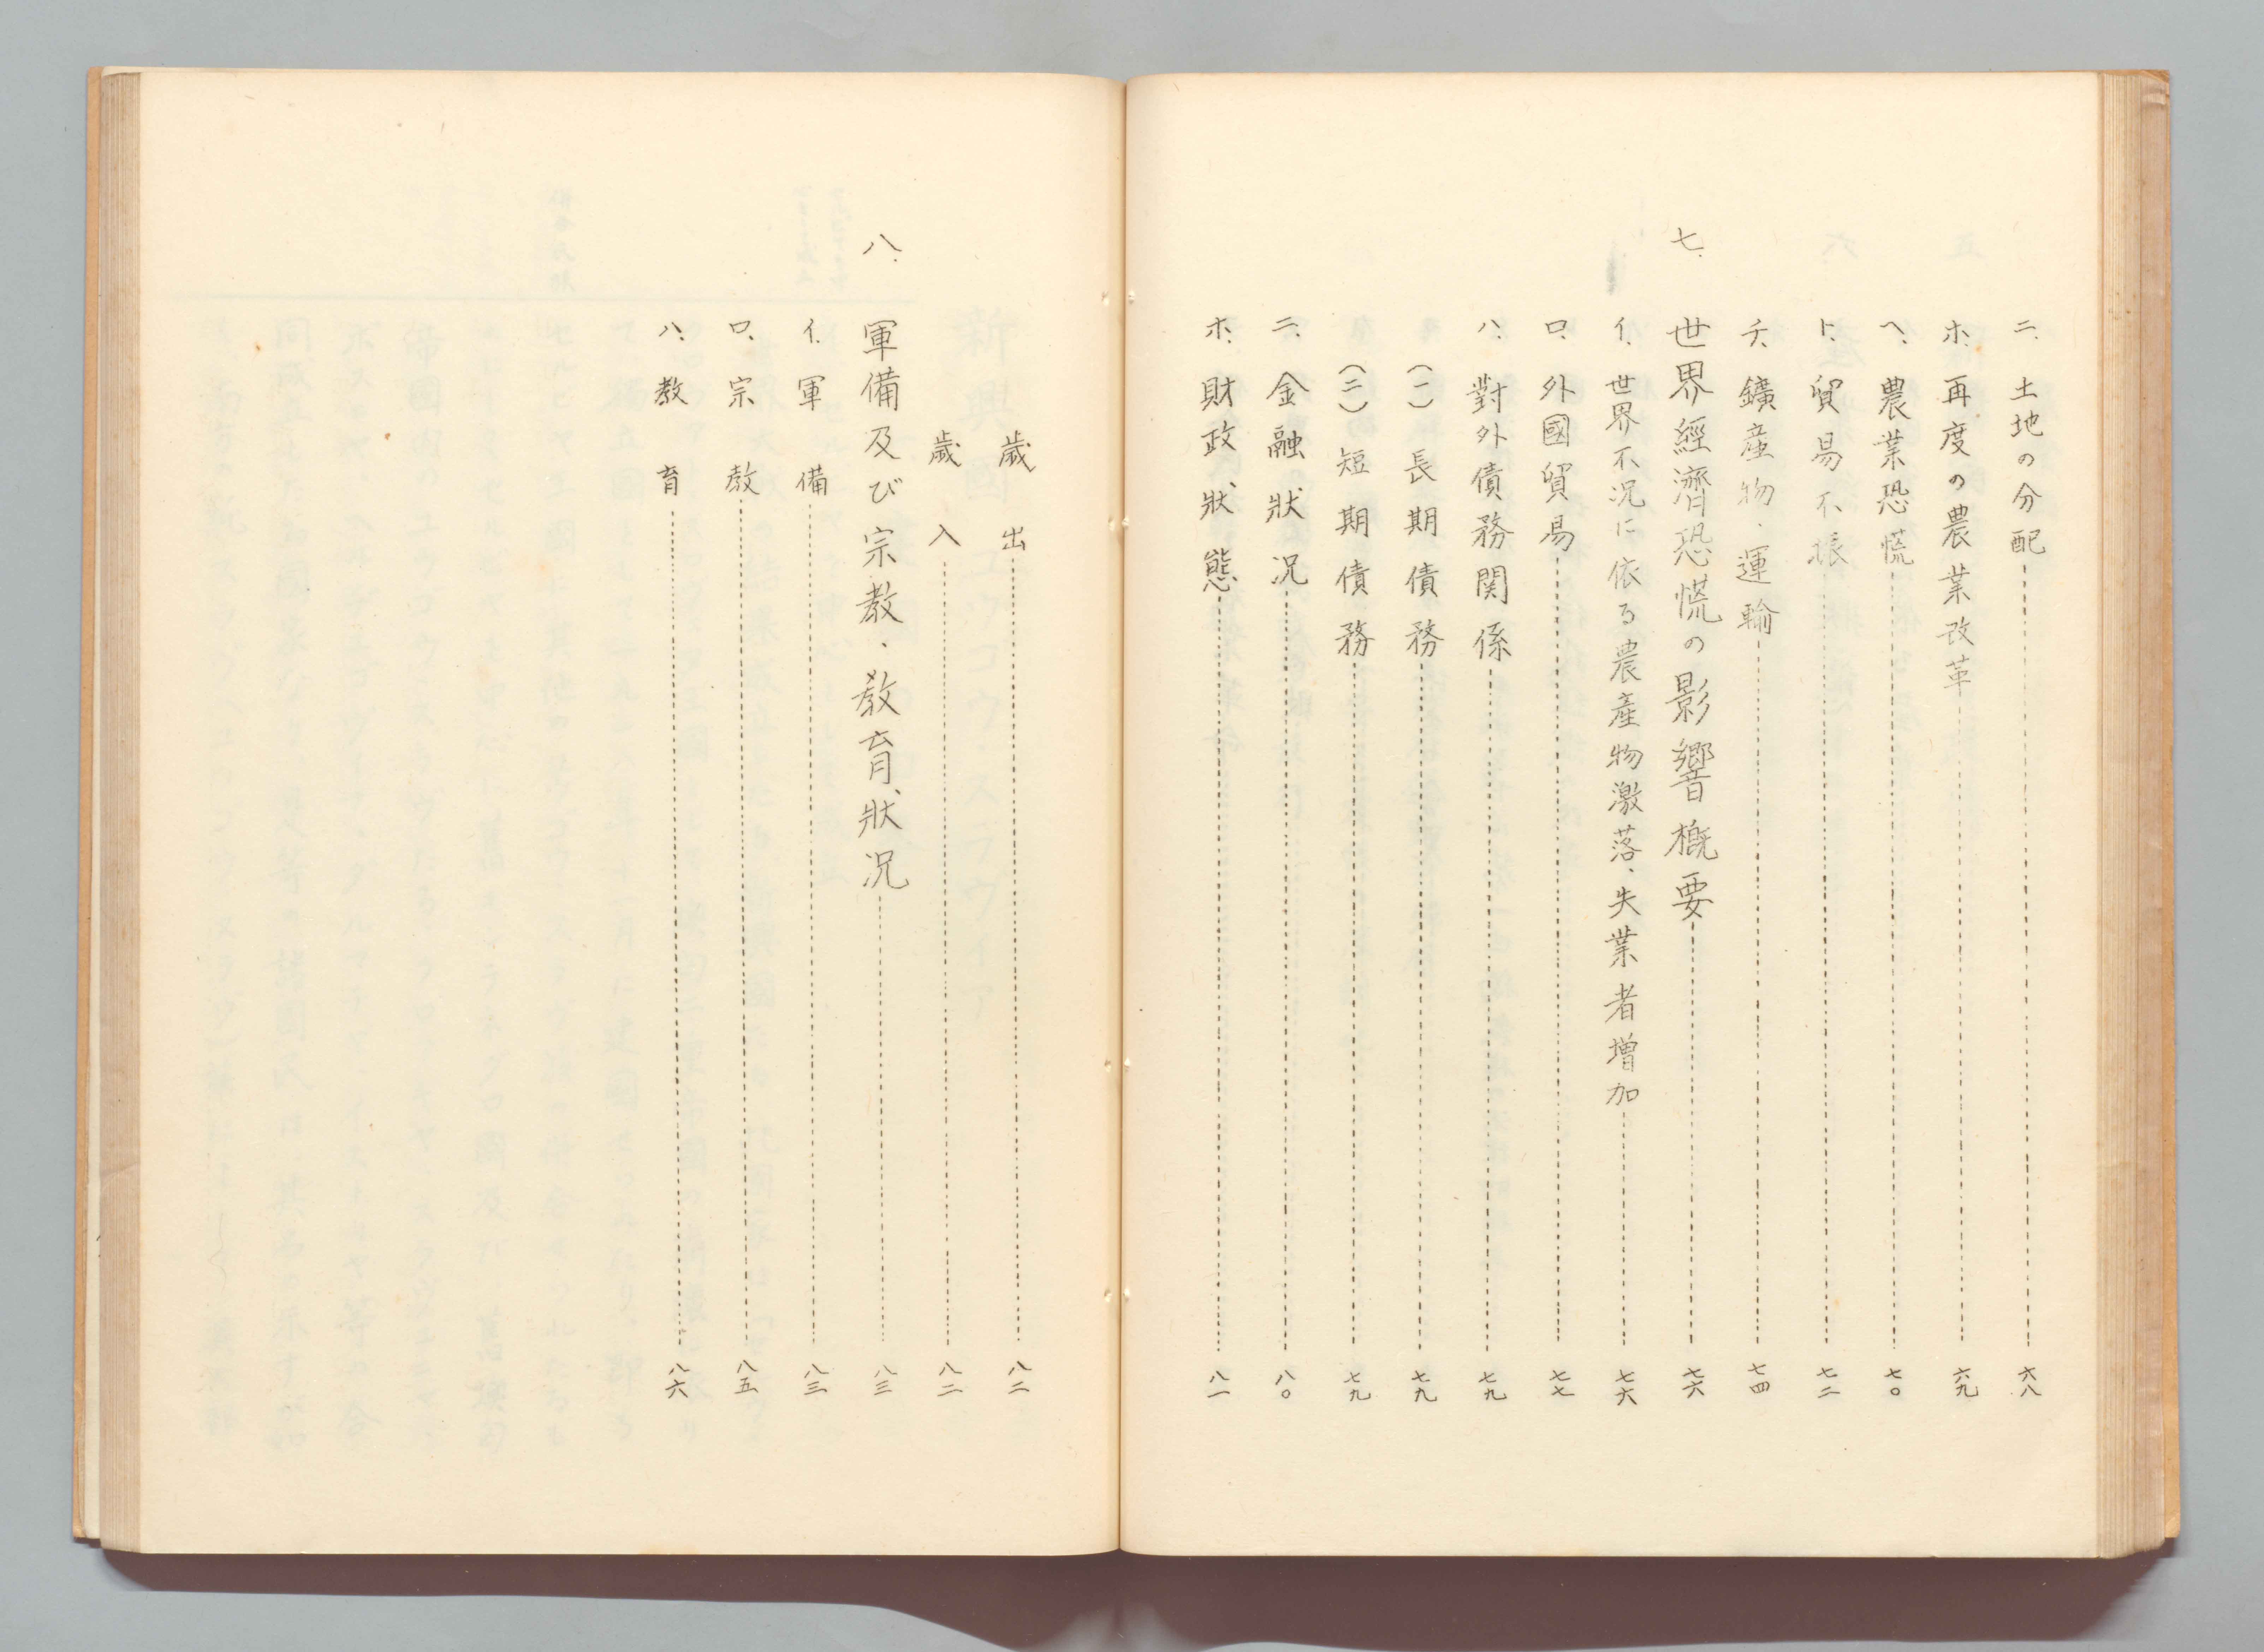 ニ、土地の分配……六八
ホ、再度の農業改革……六九
ヘ、農業恐慌……七〇
ト、貿易不振……七二
チ、鑛産物、運輸……七四
七、世界經濟恐慌の影響概要……七六
イ、世界不況に依る農産物激落、失業者増加……七六
ロ、外國貿易……七七
ハ、對外債務関係……七九
(一)長期債務……七九
(二)短期債務……七九
ニ、金融狀況……八〇
ホ、財政狀態……八一
歳出……八二
歳入……八二
八、軍備及び宗教、教育狀況……八三
イ、軍備……八三
ロ、宗教……八五
ハ、教育……八六